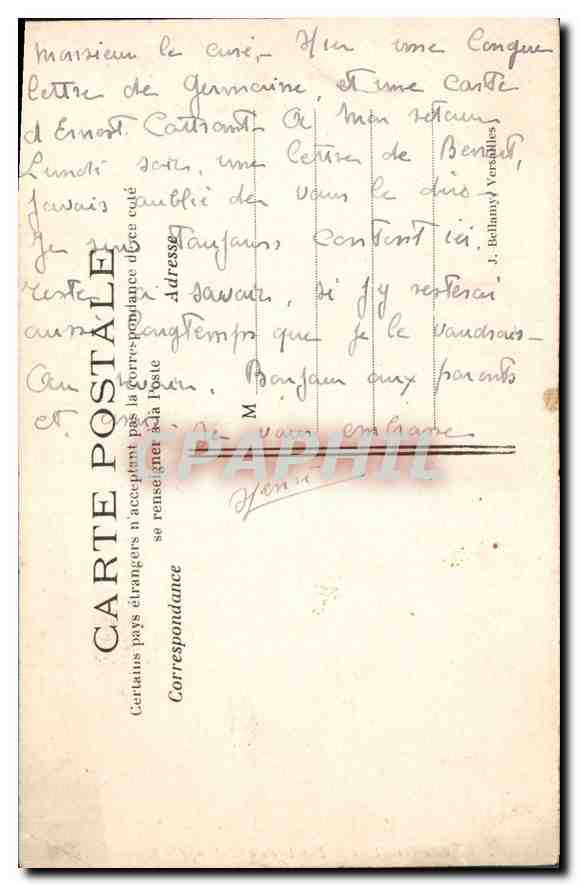 monsieur le curé, – Hier une longue
lettre de Germaine, et une carte
d Ernest. À mon retour
Lundi soir, une lettre de Benoit,
J'avais oublié de vous le dire –
Je suis toujours content ici.
reste à savoir, si j'y resterai
aussi longtemps que je le voudrais –
Au revoir. Bonjour aux parents
et Je vous embrasse
Henri
CARTE POSTALE
Certains pays étrangers n'acceptant pas la correspondance de ce coté
se renseigner à la Poste
Correspondance
Adresse
M
J. Bellamy, Versailles
CPAPHIL